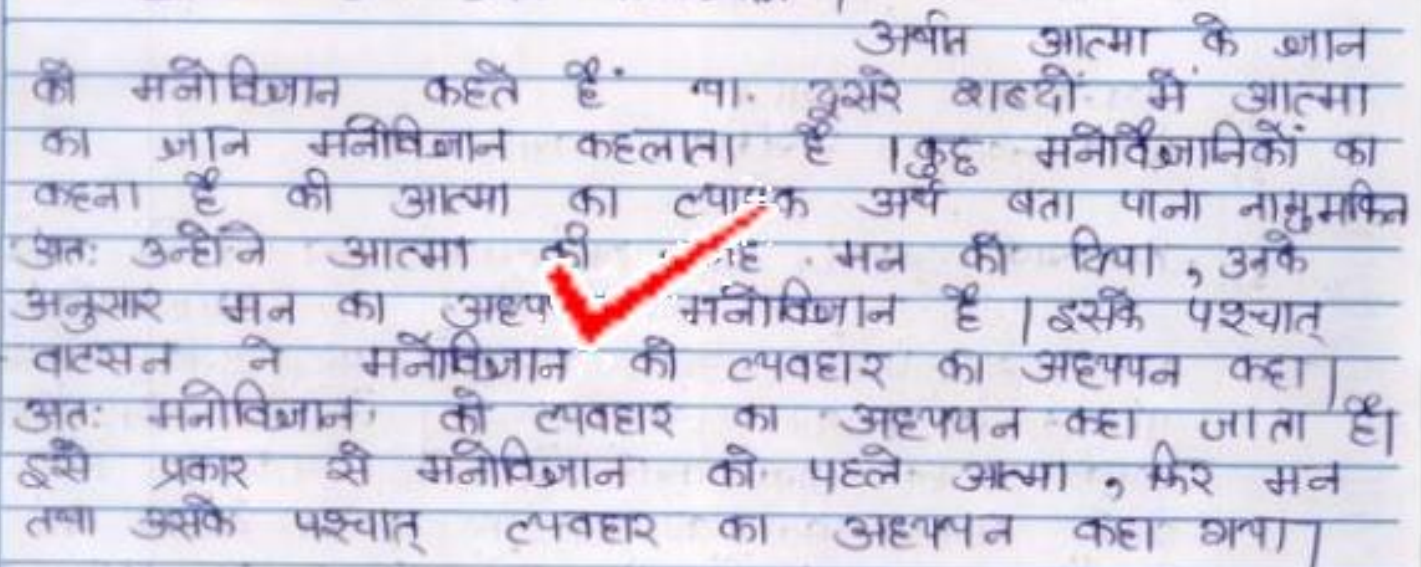 अर्थात आत्मा के ज्ञान
को मनोविज्ञान कहते हैं या दूसरे शब्दों में आत्मा
का ज्ञान मनोविज्ञान कहलाता है । कुछ मनोवैज्ञानिकों का
कहना है की आत्मा का व्यापक अर्थ बता पाना नामुमकिन
अतः उन्होंने आत्मा की मन को दिया , उनके
अनुसार मन का मनोविज्ञान है । इसके पश्चात्
वाटसन ने मनोविज्ञान को व्यवहार का अध्ययन कहा ।
अतः मनोविज्ञान को व्यवहार का अध्ययन कहा जाता है।
इसी प्रकार से मनोविज्ञान को पहले आत्मा , फिर मन
तथा उसके पश्चात् व्यवहार का अध्ययन कहा गया ।